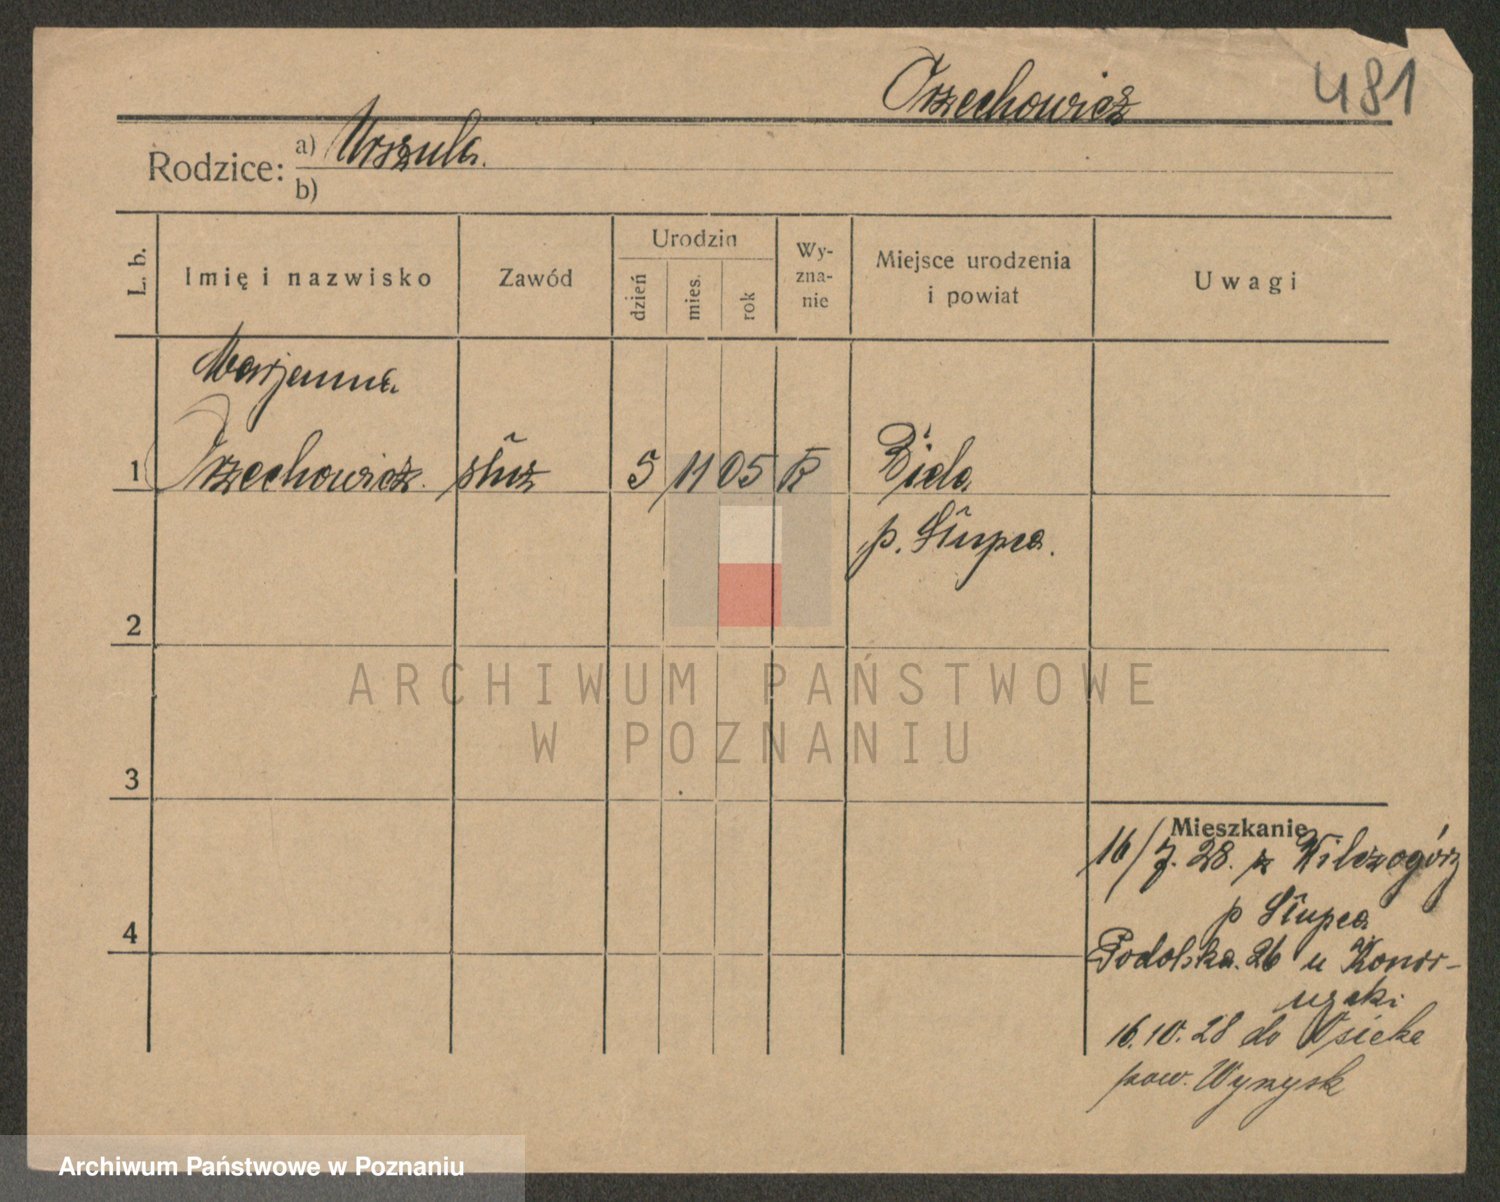 Orzechowicz 481
Rodzice: a) Urszula.
b)
L. b.
Imię i nazwisko
Zawód
Urodzin
dzień
mies.
rok
Wy-
zna-
nie
Miejsce urodzenia
i powiat
Uwagi
Marjanna
1 Orzechowicz. służ 5 11 05 R Biela
p. Słupca.
2
ARCHIWUM PAŃSTWOWE
W POZNANIU
3
Mieszkanie
16/7. 28. z Wilczogóry
p Słupca
4
Podolska. 26 u
16.10.28 do Osieka
pow. Wyrzysk
Archiwum Państwowe w Poznaniu